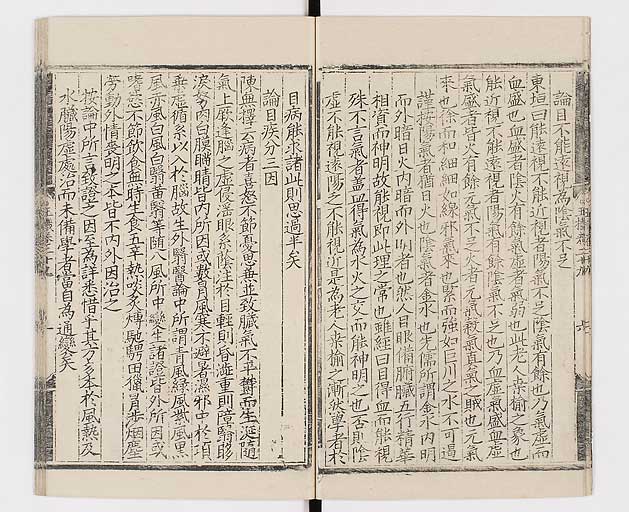 論目不能遠視為陰氣不足
東垣曰能遠視不能近視者陽氣不足陰氣有餘也乃氣虛而
血盛也血盛者陰火有餘氣虛者氣弱也此老人桑榆之象也
能近視不能遠視者陽氣有餘陰氣不足也乃血虛氣盛血虛
氣盛者皆火有餘元氣不足火者元氣穀氣真氣之賊也元氣
來也徐而和細細如線邪氣來也緊而強如巨川之水不可遏
謹按陽氣者猶日火也陰氣者金水也先儒所謂金水內明
而外暗日火內暗而外明者也然人目眼備腑臟五行精華
相資而神明故能視即此理之常也經曰目得血而能視
殊不言氣者蓋血得氣為水火之交而能神明之也否則陰
虛不能視遠陽乏不能視近是為老人桑榆之漸然學者於
目病能求諸此則思過半矣
論目疾分三因
陳無擇云病者喜怒不節憂思兼並致臟氣不平鬱而生涎隨
氣上厥逢腦之虛侵淫眼系陰注於目輕則昏澁重則障翳眵
淚努肉白膜瞞睛皆內所因或數冒風寒不避暑濕邪中於項
乘虛循系以入於腦故生外翳醫論中所謂青風綠風紫風黑
風赤風白風白翳黃翳等隨八風所中變生諸證皆外所因或
嗜慾不節飲食無時生食五辛熱啖炙煿馳騁田獵冒涉烟塵
勞動外情喪明之本皆不內外因治之
按論中所言致證之因至為詳悉惜乎其方多本於風熱及
水臟陽虛處治而未備學者當自為通變矣